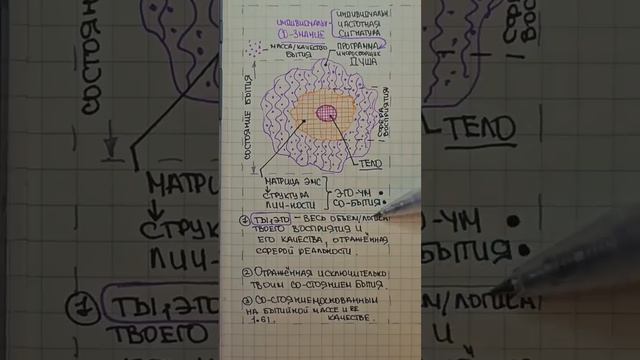 ИНДИВИДУАЛЬН
СО-ЗНАНИЕ
ИНДИВИДУАЛЬН
ЧАСТОТНАЯ
СИГНАТУРА
МАССА/КАЧЕСТВО
БЫТИЯ
ПРОГРАММА
ДУША
СОСТОЯНИЕ БЫТИЯ
СФЕРА
ВОСПРИЯТИЯ
ТЕЛО
МАТРИЦА ЭМС
СТРУКТУРА
ЛИЧ-НОСТИ
ЭГО-УМ
СО-БЫТИЯ
① ТЫ, ЭТО – ВЕСЬ ОБЪЕМ/ЛОГИСА/
ТВОЕГО ВОСПРИЯТИЯ И
ЕГО КАЧЕСТВА, ОТРАЖЁННАЯ
СФЕРОЙ РЕАЛЬНОСТИ.
② ОТРАЖЁННАЯ ИСКЛЮЧИТЕЛЬНО
ТВОИМ СО-СТОЯНИЕМ БЫТИЯ.
③ СО-СТОЯНИЕМ ОСНОВАННЫМ
НА БЫТИЙНОЙ МАССЕ И ЕЁ
КАЧЕСТВЕ.
СОСТОЯНИЕ БЫ
ВОСПР
ТЕЛО
МАТРИ
СТРУК
ЛИЧ-Н
О-УМ
БЫТИЯ
① ТЫ, ЭТО
ТВОЕГО
ЕМ/ЛОГИСА/
И